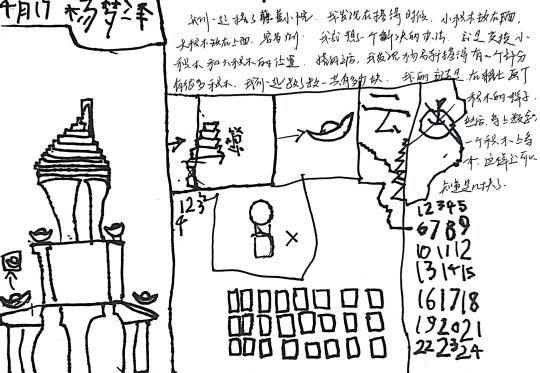 4月17 杨梦泽
我们一起搭了静蓝小院。我发现在搭得时候，小积木放在下面，
大积木放在上面，容易倒。我想了一个解决的办法，就是交换小
积木和大积木的位置。搭的后，我发现杨易新搭得有一个部分
有很多积木，我们一起数了数一共有多少块。我的方法是在纸上画下
积木的样子，
然后写上数字。
一个积木上写
木，这样就可以
知道是几块了。
123
4
12345
6789
10 11 12
13 14 15
16 17 18
19 20 21
22 23 24